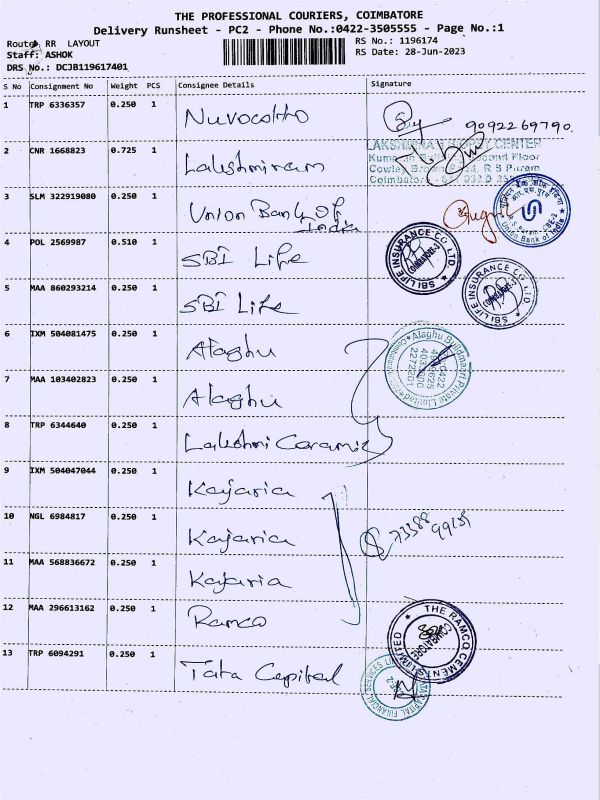 THE PROFESSIONAL COURIERS, COIMBATORE
Delivery Runsheet - PC2 - Phone No.:0422-3505555 - Page No.:1
Route: RR LAYOUT
RS No.: 1196174
Staff: ASHOK
RS Date: 28-Jun-2023
DRS No.: DCJB119617401
S No Consignment No Weight PCS Consignee Details Signature
1 TRP 6336357 0.250 1 Nuvocotto 9092269790.
2 CNR 1668823 0.725 1 Lakshmiram
LAKSHMIRAM SUPPLY CENTER
Second Floor
Cowley Brown Road, R S Puram
Coimbatore
3 SLM 322919080 0.250 1 Union Bank Of India
Union Bank of India
4 POL 2569987 0.510 1 SBI Life
SBI LIFE INSURANCE CO. LTD
5 MAA 860293214 0.250 1 SBI Life
SBI LIFE INSURANCE CO. LTD
6 IXM 504081475 0.250 1 Alaghu
Alaghu Buildmaart Private Limited
7 MAA 103402823 0.250 1 Alaghu
8 TRP 6344640 0.250 1 Lakshmi Ceramic
9 IXM 504047044 0.250 1 Kajaria
10 NGL 6984817 0.250 1 Kajaria
11 MAA 568836672 0.250 1 Kajaria
12 MAA 296613162 0.250 1 Ramco
THE RAMCO CEMENTS LIMITED
COIMBATORE
13 TRP 6094291 0.250 1 Tata Capital
TATA CAPITAL FINANCIAL SERVICES LIMITED